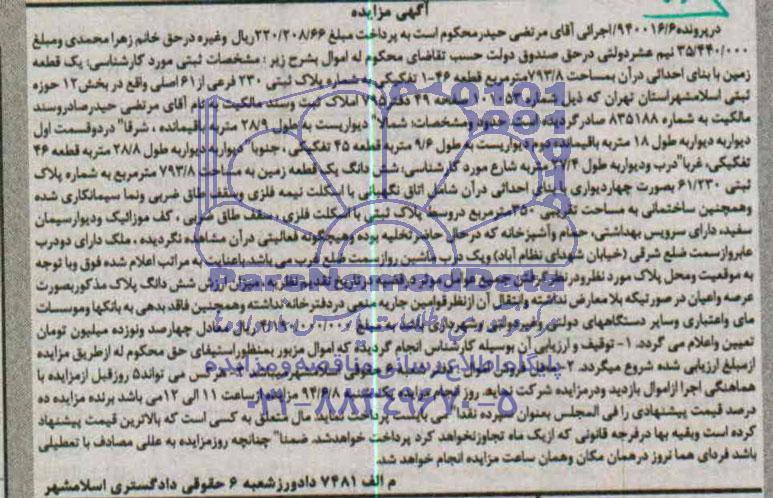 آگهی مزایده
درپرونده ۹۴۰۰۱۶/۶/اجرائی آقای مرتضی حیدرمحکوم است به پرداخت مبلغ ۲۲۰/۲۰۸/۶۶ریال وغیره درحق خانم زهرا محمدی ومبلغ
۳۵/۴۴۰/۰۰۰ نیم عشردولتی درحق صندوق دولت حسب تقاضای محکوم له اموال بشرح زیر : مشخصات ثبتی مورد کارشناسی: یک قطعه
زمین با بنای احداثی درآن بمساحت ۷۹۳/۸مترمربع قطعه ۴۶-۱ تفکیکی به شماره پلاک ثبتی ۲۳۰ فرعی از۶۱ اصلی واقع در بخش۱۲ حوزه
ثبتی اسلامشهراستان تهران که ذیل شماره ۱۰۱۰۵۳ صفحه ۴۹ دفتر۷۹۵ املاک ثبت وسند مالکیت به نام آقای مرتضی حیدرصادروسند
مالکیت به شماره ۸۳۵۱۸۸ صادرگردیده است. حدود ومشخصات: شمالا" دیواریست به طول ۲۸/۹ متربه باقیمانده ، شرقا" دردوقسمت اول
دیواربه دیواربه طول ۱۸ متربه باقیمانده دوم دیواریست به طول ۹/۶ متربه قطعه ۴۵ تفکیکی ، جنوبا" دیواربه دیواربه طول ۲۸/۸ متربه قطعه ۴۶
تفکیکی، غربا" درب ودیواربه طول ۲۷/۴ متربه شارع مورد کارشناسی: شش دانگ یک قطعه زمین به مساحت ۷۹۳/۸ مترمربع به شماره پلاک
ثبتی ۶۱/۲۳۰ بصورت چهاردیواری با بنای احداثی درآن شامل اتاق نگهبانی با اسکلت نیمه فلزی وسقف طاق ضربی ونما سیمانکاری شده
وهمچنین ساختمانی به مساحت تقریبی ۳۵۰مترمربع دروسط پلاک ثبتی با اسکلت فلزی ، سقف طاق ضربی ، کف موزائیک ودیوارسیمان
سفید، دارای سرویس بهداشتی، حمام وآشپزخانه که درحال حاضرتخلیه بوده وهیچگونه فعالیتی درآن مشاهده نگردیده ، ملک دارای دودرب
عابروازسمت ضلع شرقی (خیابان شهدای نظام آباد) ویک درب ماشین روازسمت ضلع غرب می باشد.باعنایت به مراتب اعلام شده فوق وبا توجه
به موقعیت ومحل پلاک مورد نظرودرنظرگرفتن جمیع عوامل موثر درقضیه درتاریخ تقدیم نظریه ، میزان ارزش شش دانگ پلاک مذکوربصورت
عرصه واعیان در صورتیکه بلا معارض نداشته وانتقال آن ازنظرقوانین جاریه منعی دردفترخانه نداشته وهمچنین فاقد بدهی به بانکها وموسسات
مای واعتباری وسایر دستگاههای دولتی وغیردولتی وشهرداری باشد به مبلغ ۴/۱۹۰/۰۰۰/۰۰۰ریال معادل چهارصد ونوزده میلیون تومان
تعیین واعلام می گردد. ۱- توقیف و ارزیابی آن بوسیله کارشناس انجام گردیده که اموال مزبور بمنظوراستیفای حق محکوم له ازطریق مزایده
ازمبلغ ارزیابی شده شروع میگردد. ۲- محل فروش اموال : دفتر شعبه ۶ حقوقی اسلامشهرمیباشد ۳- هرکس می تواند۵ روزقبل ازمزایده با
هماهنگی اجرا ازاموال بازدید ودرمزایده شرکت نماید. روز انجام مزایده یکشنبه ۹۴/۶/۸ مزایده ازساعت ۱۱ الی ۱۲می باشد برنده مزایده ده
درصد قیمت پیشنهادی را فی المجلس بعنوان سپرده نقدا" می بایست پرداخت نماید. مال متعلق به کسی است که بالاترین قیمت پیشنهاد
کرده است وبقیه بها درفرجه قانونی که ازیک ماه تجاوزنخواهد کرد پرداخت خواهدشد. ضمنا" چنانچه روزمزایده به عللی مصادف با تعطیلی
باشد فردای هما نروز درهمان مکان وهمان ساعت مزایده انجام خواهد شد.
م الف ۷۴۸۱ دادورزشعبه ۶ حقوقی دادگستری اسلامشهر
ParsNamadData
پایگاه اطلاع رسانی مناقصه و مزایده
۰۲۱-۸۸۳۴۹۶۷۰-۵